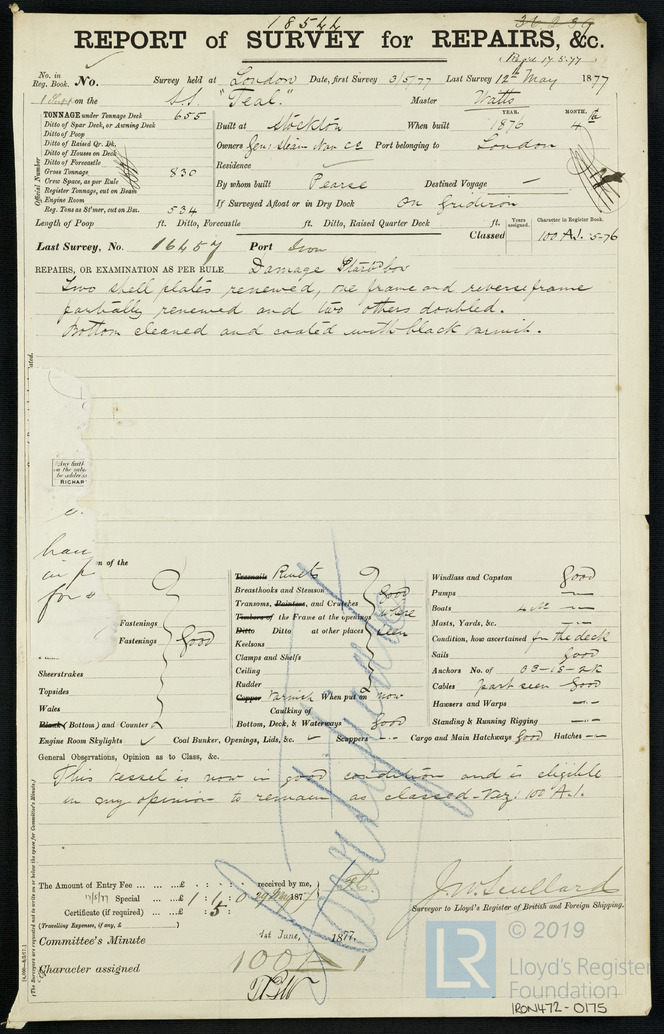 18544
36239
REPORT of SURVEY for REPAIRS, &c.
No. in Reg. Book. No. Survey held at London Date, first Survey 3/5/77 Last Survey 12th May 1877
on the s.s. "Teal." Master Watts
TONNAGE under Tonnage Deck 655
Ditto of Spar Deck, or Awning Deck
Ditto of Poop
Ditto of Raised Qr. Dk.
Ditto of Houses on Deck
Ditto of Forecastle
Gross Tonnage 830
Crew Space, as per Rule
Register Tonnage, cut on Beam
Engine Room
Reg. Tons as St'mer, cut on Bm. 534
Official Number
YEAR. MONTH.
Built at Stockton When built 1876 4th
Owners Gen: Steam Nav Co Port belonging to London
Residence
By whom built Pearse Destined Voyage
If Surveyed Afloat or in Dry Dock on Gridiron
Length of Poop ft. Ditto, Forecastle ft. Ditto, Raised Quarter Deck ft.
Years assigned. Character in Register Book.
Classed 100 A.1. 5-76
Last Survey, No. 16457 Port Iron
REPAIRS, OR EXAMINATION AS PER RULE Damage Starbd bow
Two shell plates renewed, one frame and reverse frame
partially renewed and two others doubled.
Bottom cleaned and coated with black varnish.
RICHAR
n of the
Fastenings
Fastenings Good
Sheerstrakes
Topsides
Wales
Plank (Bottom) and Counter
Treenails Rivets
Breasthooks and Stemson Good
Transoms, Pointers, and Crutches where
Timbers of the Frame at the openings seen
Ditto Ditto at other places
Keelsons
Clamps and Shelfs
Ceiling
Rudder
Copper Varnish When put on now
Caulking of
Bottom, Deck, & Waterways good
Windlass and Capstan Good
Pumps
Boats 4
Masts, Yards, &c.
Condition, how ascertained fm the deck
Sails Good
Anchors No. of
Cables part seen Good
Hawsers and Warps
Standing & Running Rigging
Engine Room Skylights Coal Bunker, Openings, Lids, &c. Scuppers Cargo and Main Hatchways Good Hatches
General Observations, Opinion as to Class, &c.
This vessel is now in good condition and is eligible
in my opinion to remain as classed - Viz: 100 A.1.
The Amount of Entry Fee £ : : received by me,
17/5/77 Special £ 1 : 1 : 0 29 May 1877
Certificate (if required) : 5 :
(Travelling Expenses, if any, £ )
J.W. Scullard
Surveyor to Lloyd's Register of British and Foreign Shipping.
Committee's Minute 1st June, 1877.
Character assigned 100 A 1
© 2019
LR Lloyd's Register
Foundation
IRON472-0175